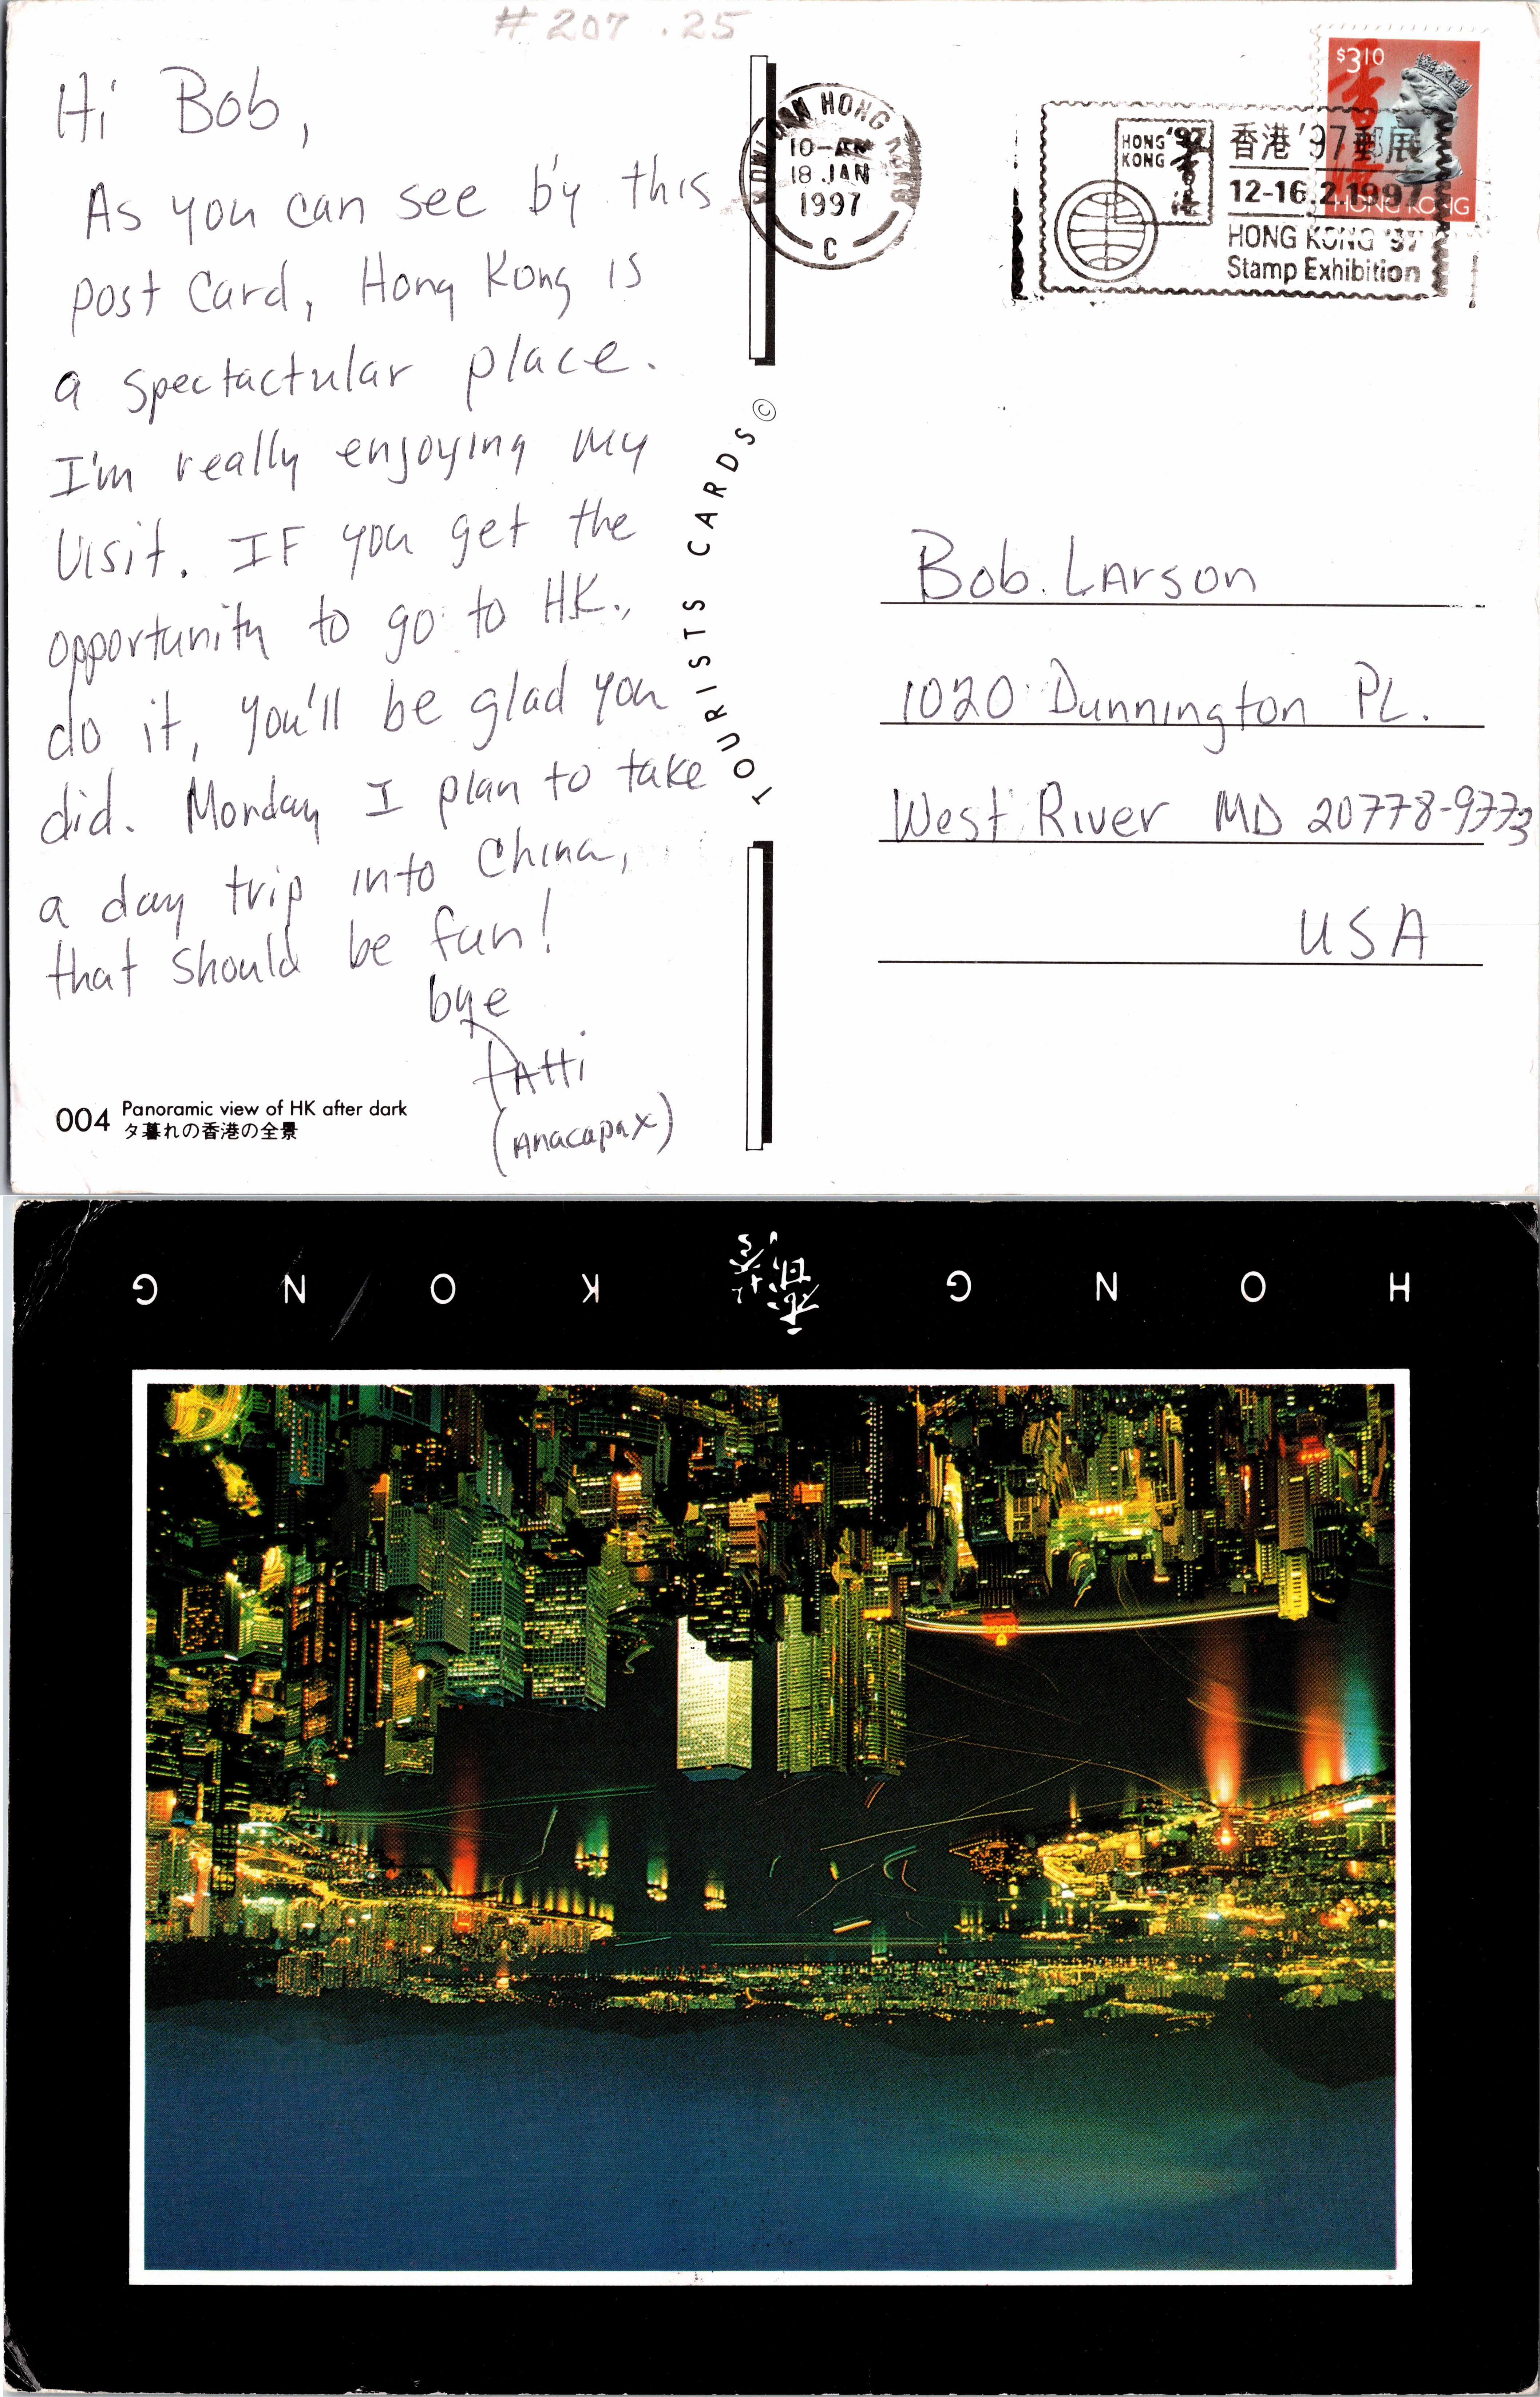 #207 .25
Hi Bob,
As you can see by this
post card, Hong Kong is
a spectactular place.
I'm really enjoying my
visit. IF you get the
opportunity to go to HK.,
do it, you'll be glad you
did. Monday I plan to take
a day trip into China,
that should be fun!
bye
PAtti
(Anacapax)
004 Panoramic view of HK after dark
夕暮れの香港の全景
TOURISTS CARDS ©
KOWLOON HONG KONG
10-AM
18 JAN
1997
C
HONG '97
KONG
香港'97郵展
12-16.2.1997
HONG KONG '97
Stamp Exhibition
$3.10
香港
HONG KONG
Bob Larson
1020 Dunnington PL.
West River MD 20778-9773
USA
HONG 香港 KONG